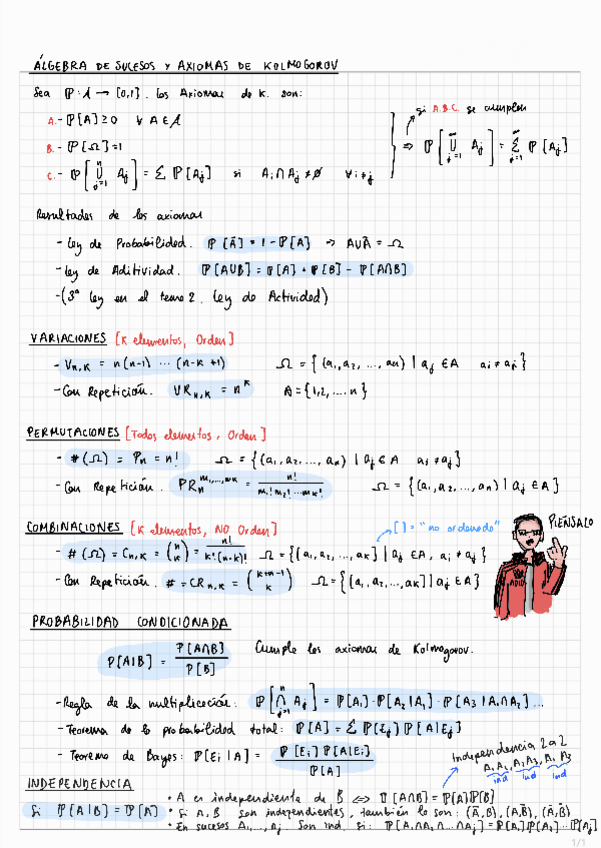 ÁLGEBRA DE SUCESOS Y AXIOMAS DE KOLMOGOROV
Sea ℙ: A → [0,1]. Los Axiomas de K. son:
A.- ℙ[A] ≥ 0 ∀ A ∈ A
B.- ℙ[Ω] = 1
C.- ℙ[⋃_{j=1}^{n} A_j] = Σ ℙ[A_j] si A_i ∩ A_j ≠ ∅ ∀ i ≠ j
Si A.B.C. se cumplen
⇒ ℙ[⋃_{j=1}^{∞} A_j] = Σ_{j=1}^{∞} ℙ[A_j]
Resultados de los axiomas
- Ley de Probabilidad. ℙ[Ā] = 1 - ℙ[A] → A∪Ā = Ω
- Ley de Aditividad. ℙ[A∪B] = ℙ[A] + ℙ[B] - ℙ[A∩B]
- (3ª ley en el tema 2. Ley de Actividad)
VARIACIONES [K elementos, Orden]
- V_{n,K} = n(n-1) ... (n-K+1) Ω = {(a₁, a₂, ..., a_n) | a_j ∈ A a_i ≠ a_j}
- Con Repetición. VR_{n,K} = n^K A = {1,2,...n}
PERMUTACIONES [Todos elementos, Orden]
- #(Ω) = P_n = n! Ω = {(a₁, a₂, ..., a_n) | a_j ∈ A a_i ≠ a_j}
- Con Repetición. PR_n^{m₁,...,m_K} = n!/(m₁! m₂! ... m_K!) Ω = {(a₁, a₂, ..., a_n) | a_j ∈ A}
COMBINACIONES [K elementos, NO Orden]
[ ] = "no ordenado"
PIÉNSALO
- #(Ω) = C_{n,K} = (n K) = n!/(K!(n-K)!) Ω = {[a₁, a₂, ..., a_K] | a_j ∈ A, a_i ≠ a_j}
- Con Repetición. # = CR_{n,K} = (K+n-1 K) Ω = {[a₁, a₂, ..., a_K] | a_j ∈ A}
PROBABILIDAD CONDICIONADA
P[A|B] = P[A∩B]/P[B] Cumple los axiomas de Kolmogorov.
- Regla de la multiplicación: ℙ[⋂_{j=1}^{n} A_j] = ℙ[A₁]·ℙ[A₂|A₁]·ℙ[A₃|A₁∩A₂]...
- Teorema de la probabilidad total: ℙ[A] = Σ ℙ[E_j] ℙ[A|E_j]
- Teorema de Bayes: ℙ[E_i|A] = ℙ[E_i] ℙ[A|E_i]/ℙ[A]
Independencia 2 a 2
A₁A₂, A₂A₃, A₁A₃
ind ind ind
INDEPENDENCIA
Si ℙ[A|B] = ℙ[A]
• A es independiente de B ⇔ ℙ[A∩B] = ℙ[A]ℙ[B]
• Si A, B son independientes, también lo son: (Ā,B), (A,B̄), (Ā,B̄)
• En sucesos A₁,...,A_j son ind. si: ℙ[A₁∩A₂∩...∩A_j] = ℙ[A₁]ℙ[A₂]...ℙ[A_j]
1/1